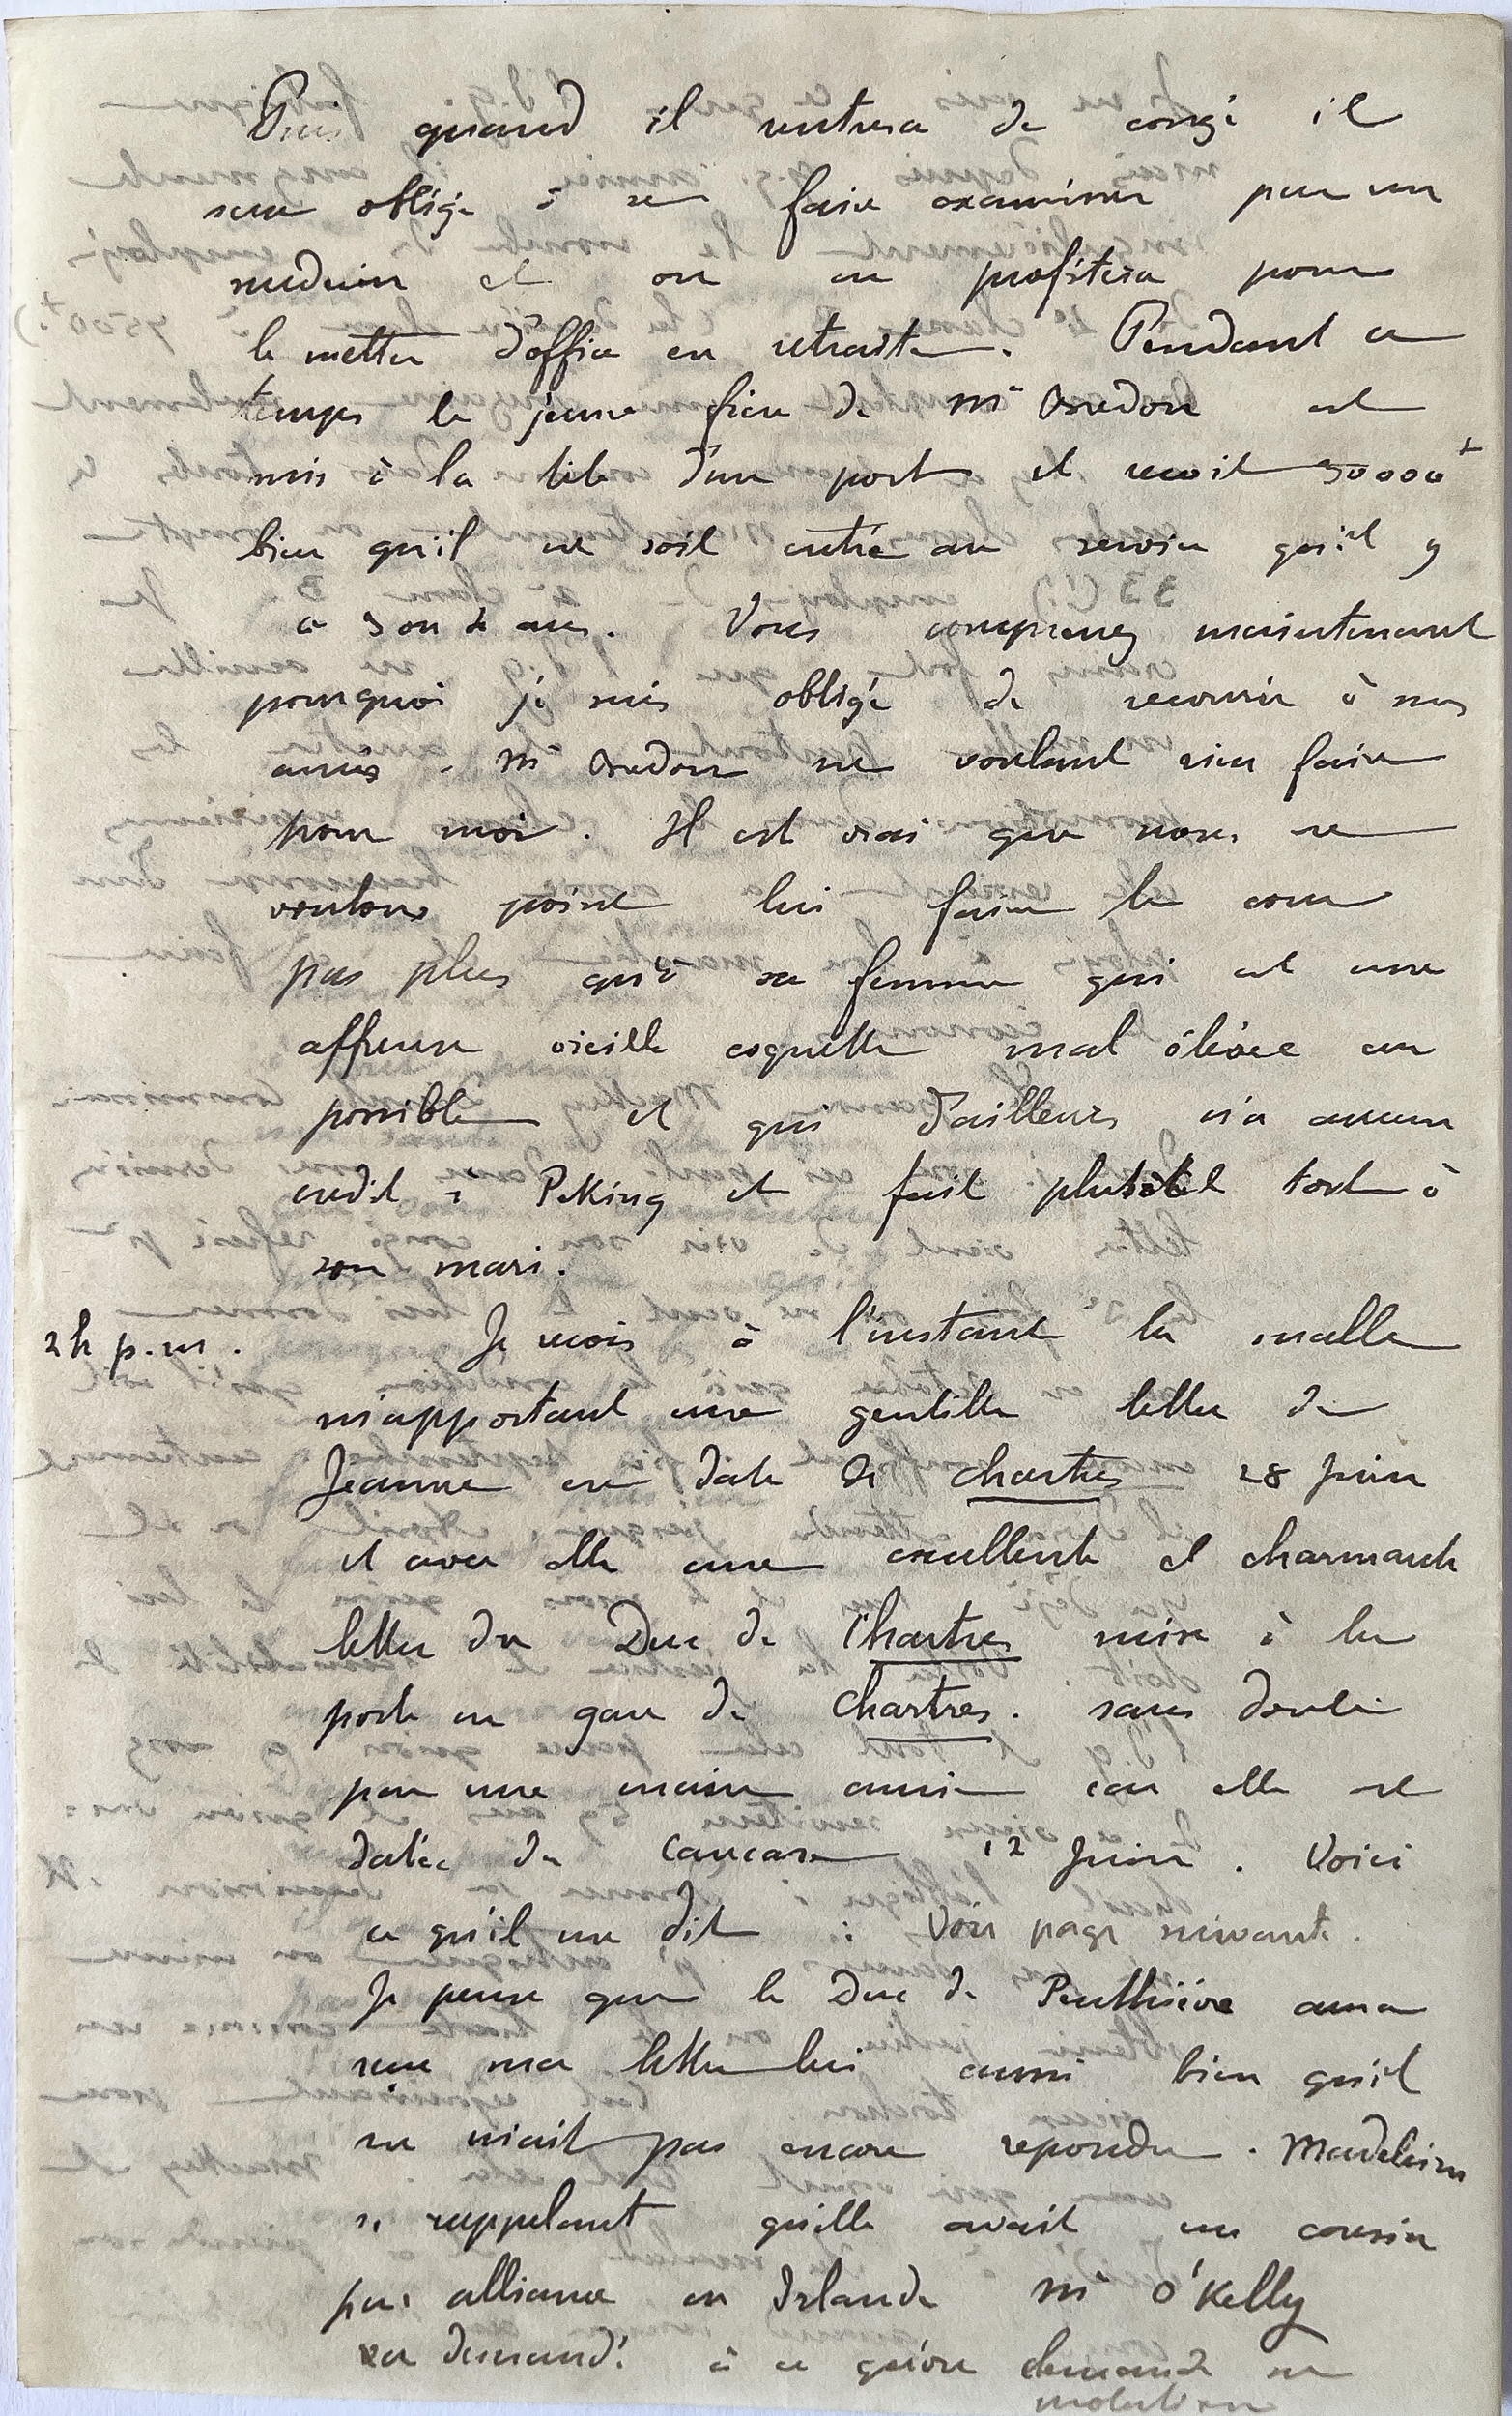 Puis quand il rentrera de congé il
sera obligé à se faire examiner par un
medecin et on en profitera pour
le mettre d'office en retraite. Pendant ce
temps le jeune frère de Mr Bredon est
mis à la tête d'un port et reçoit
bien qu'il ne soit entré au service qu'il y
a 3 ou 4 ans. Vous comprenez maintenant
pourquoi je suis obligé de recourir à mes
amis. Mr Bredon ne voulant rien faire
pour moi. Il est vrai que nous ne
voulons point lui faire la cour
pas plus qu'à sa femme qui est une
affreuse vieille coquette mal élevée au
possible et qui d'ailleurs n'a aucun
credit à Peking et fait plutôt tort à
son mari.
2h p.m. Je reçois à l'instant la malle
m'apportant une gentille lettre de
Jeanne en date de Chartres 28 Juin
et avec elle une excellente et charmante
lettre du Duc de Chartres mise à la
poste en gare de Chartres. sans doute
par une main amie car elle est
datée du Caucase 12 Juin. Voici
ce qu'il me dit : Voir page suivante.
Je pense que le Duc de Penthièvre aura
reçu ma lettre lui aussi bien qu'il
ne m'ait pas encore repondu. Madeleine
se rappelant qu'elle avait un cousin
par alliance en Irlande Mr O'Kelly
a demandé à ce qu'on demande